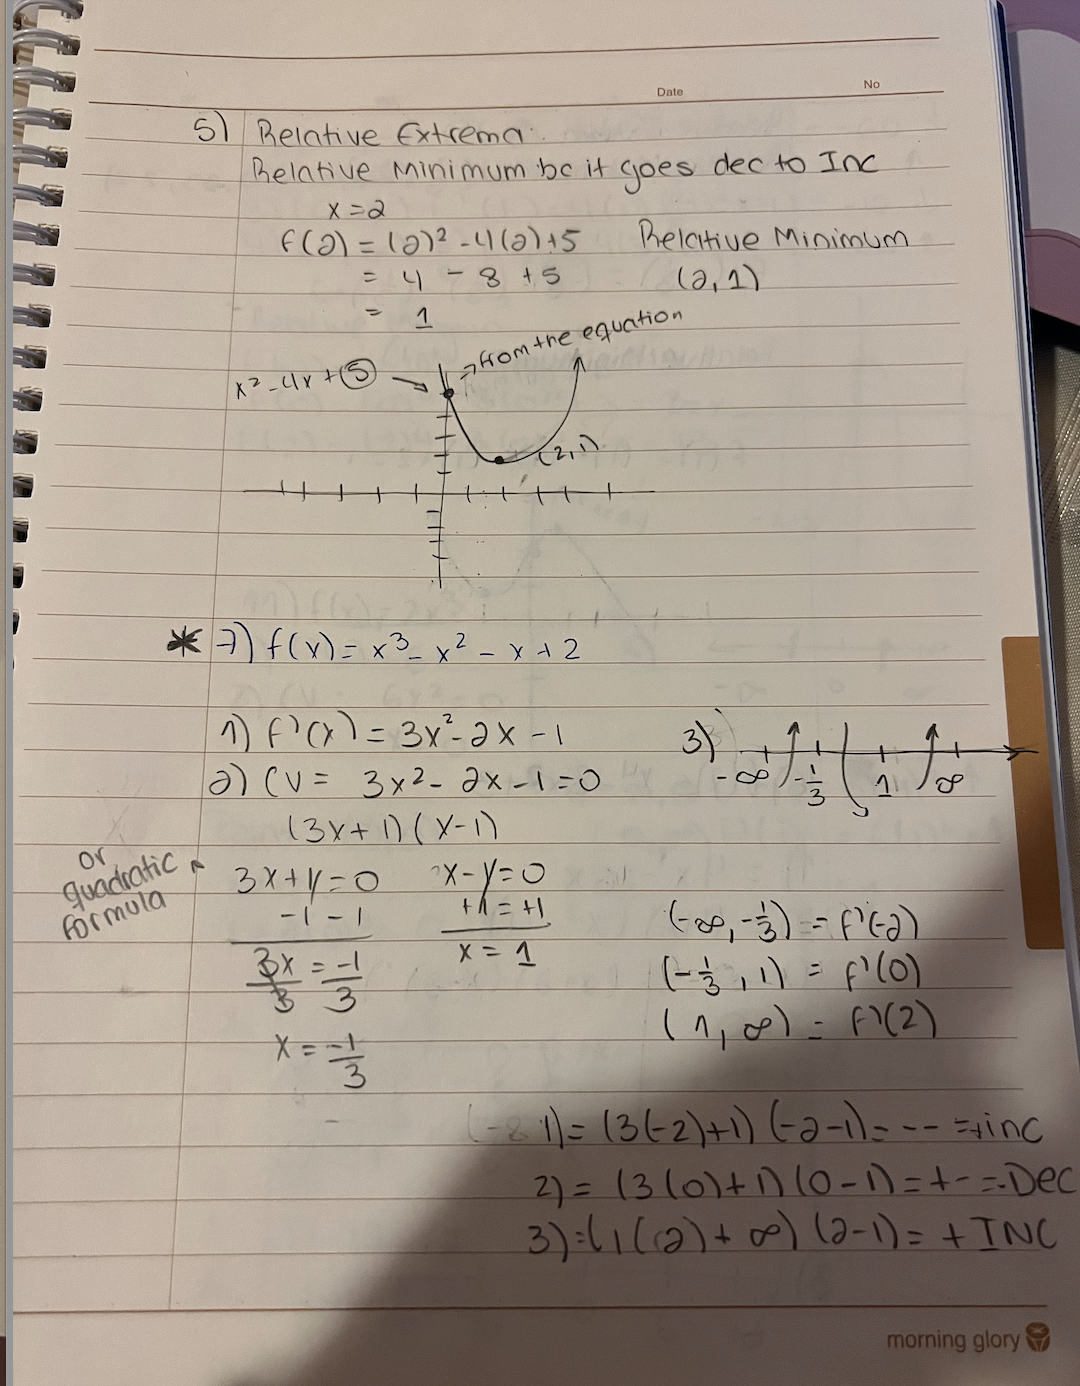 Date
No
5) Relative Extrema:
Relative Minimum bc it goes dec to Inc
x=2
f(2) = (2)² -4(2)+5 Relative Minimum
= 4 - 8 +5 (2,1)
= 1
→from the equation
x²-4x+5 →
(2,1)
* 7) f(x)= x³- x² - x+2
1) f'(x) = 3x²-2x -1
3) -∞ -1/3 1 ∞
2) CV = 3x²- 2x-1=0
(3x+1)(x-1)
or quadratic formula
3x+1=0 x-1=0
-1 -1 +1 = +1
3x/3 = -1/3 x = 1
x = -1/3
(-∞,-1/3) = f'(-2)
(-1/3, 1) = f'(0)
(1, ∞) = f'(2)
1)= (3(-2)+1) (-2-1)= -- =+inc
2)= (3(0)+1)(0-1)=+- =-Dec
3)=(1(2)+∞) (2-1)= + INC
morning glory